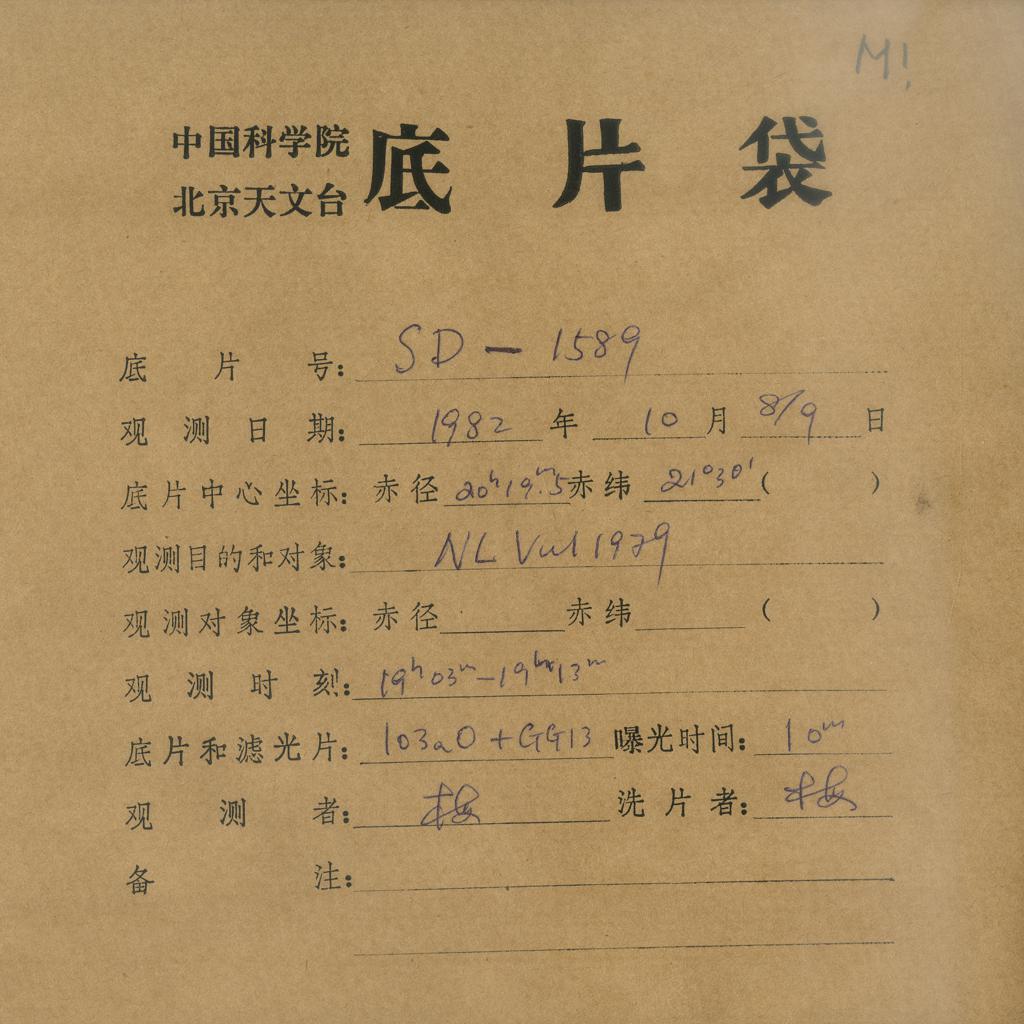 M!
中国科学院
北京天文台
底片袋
底片号：SD - 1589
观测日期：1982年10月8/9日
底片中心坐标：赤径20ʰ19ᵐ.5赤纬21°30′( )
观测目的和对象：NL Vul 1979
观测对象坐标：赤径 赤纬 ( )
观测时刻：19ʰ03ᵐ-19ʰ13ᵐ
底片和滤光片：103aO+GG13 曝光时间：10ᵐ
观测者：梅 洗片者：梅
备注：